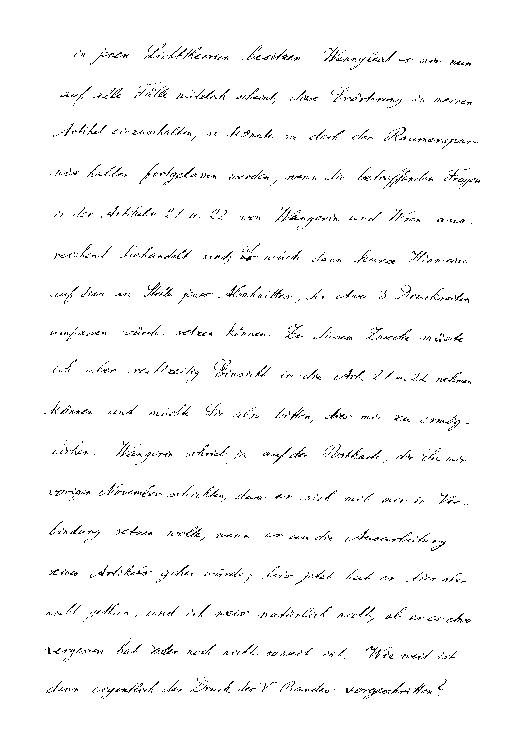 in jenen Lichttheorien besitzen. Wenngleich es mir nun
auf alle Fälle nützlich scheint, diese Erörterung in meinen
Artikel einzuschalten, so könnte sie doch der Raumersparnis
halber fortgelassen werden, wenn die betreffenden Fragen
in den Artikeln 21 u. 22 von Wangerin und Wien aus-
reichend behandelt sind; ich würde dann kurze Hinweise
auf diese an Stelle jenes Abschnittes, der etwa 3 Druckseiten
umfassen würde, setzen können. Zu diesem Zwecke müsste
ich aber rechtzeitig Einsicht in die Art. 21 u. 22 nehmen
können und möchte Sie also bitten, dies mir zu ermög-
lichen. Wangerin schrieb ja auf der Postkarte, die Sie mir
vorigen November schickten, dass er sich mit mir in Ver-
bindung setzen wolle, wenn er an die Ausarbeitung
seines Artikels gehen würde; bis jetzt hat er dies aber
nicht gethan, und ich weiss natürlich nicht, ob er es etwa
vergessen hat oder noch nicht soweit ist. Wie weit ist
denn eigentlich der Druck des V Bandes vorgeschritten?